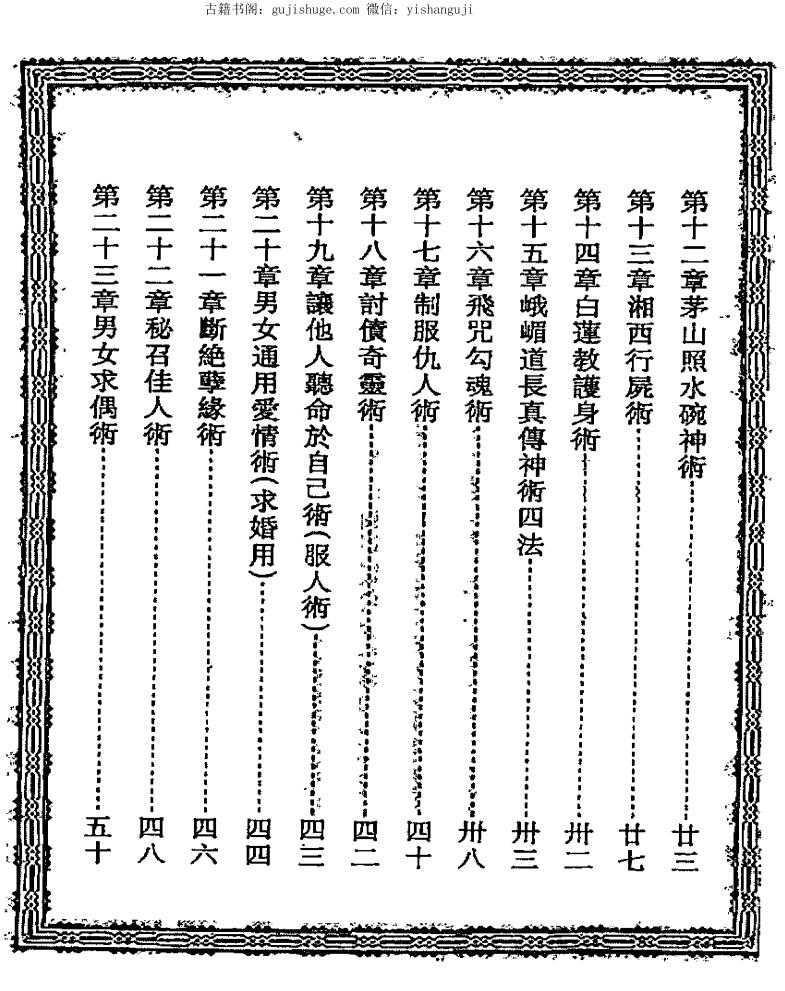 古籍书阁：gujishuge.com 微信：yishanguji
第十二章茅山照水碗神術……廿三
第十三章湘西行屍術……廿七
第十四章白蓮教護身術……卅二
第十五章峨嵋道長真傳神術四法……卅三
第十六章飛咒勾魂術……卅八
第十七章制服仇人術……四十
第十八章討債奇靈術……四二
第十九章讓他人聽命於自己術(服人術)……四三
第二十章男女通用愛情術(求婚用)……四四
第二十一章斷絕孽緣術……四六
第二十二章秘召佳人術……四八
第二十三章男女求偶術……五十